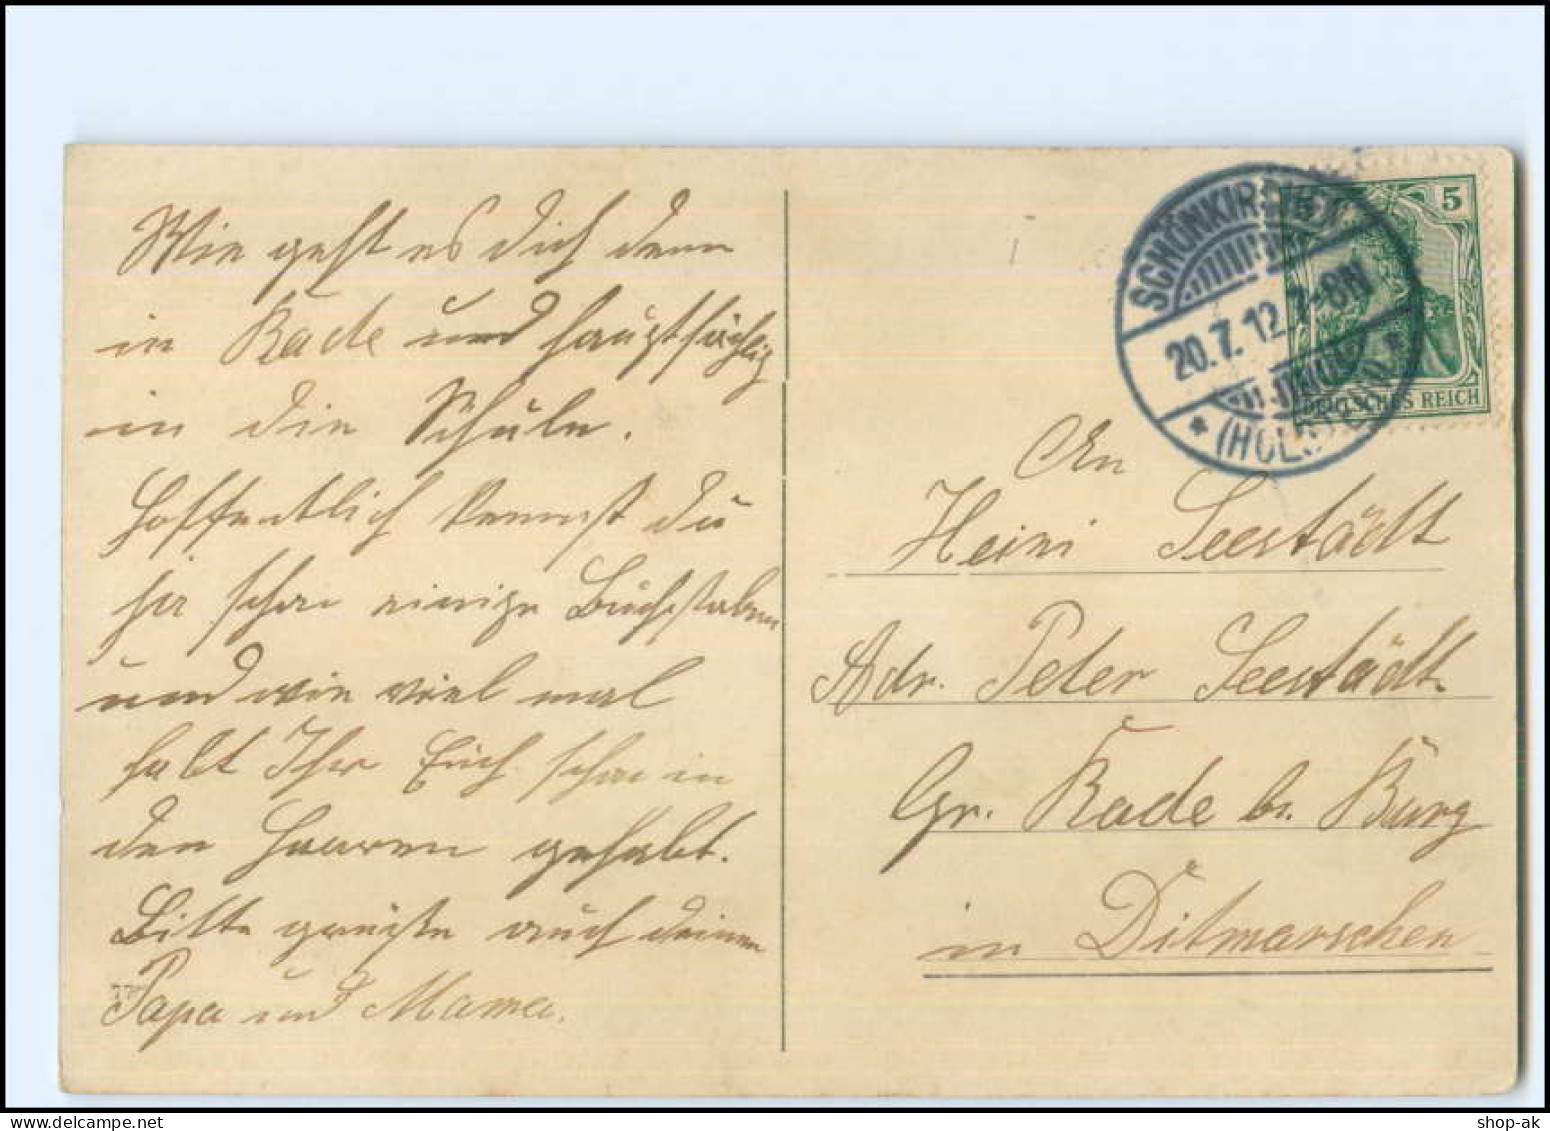 Wie geht es dich denn
in Rade und hauptsächlig
in die Schule.
Hoffentlich kennst du
ja schon einige Buchstaben
und wie viel mal
habt Ihr Euch schon in
den Haaren gehabt.
Bitte grüße auch deinen
Papa und Mama.
SCHÖNKIRCHEN
20.7.12.7-8N
* (HOLSTEIN) *
5 5
DEUTSCHES REICH
An
Heini Seestädt
Adr. Peter Seestädt
Gr. Rade b. Burg
in Ditmarschen
shop-ak